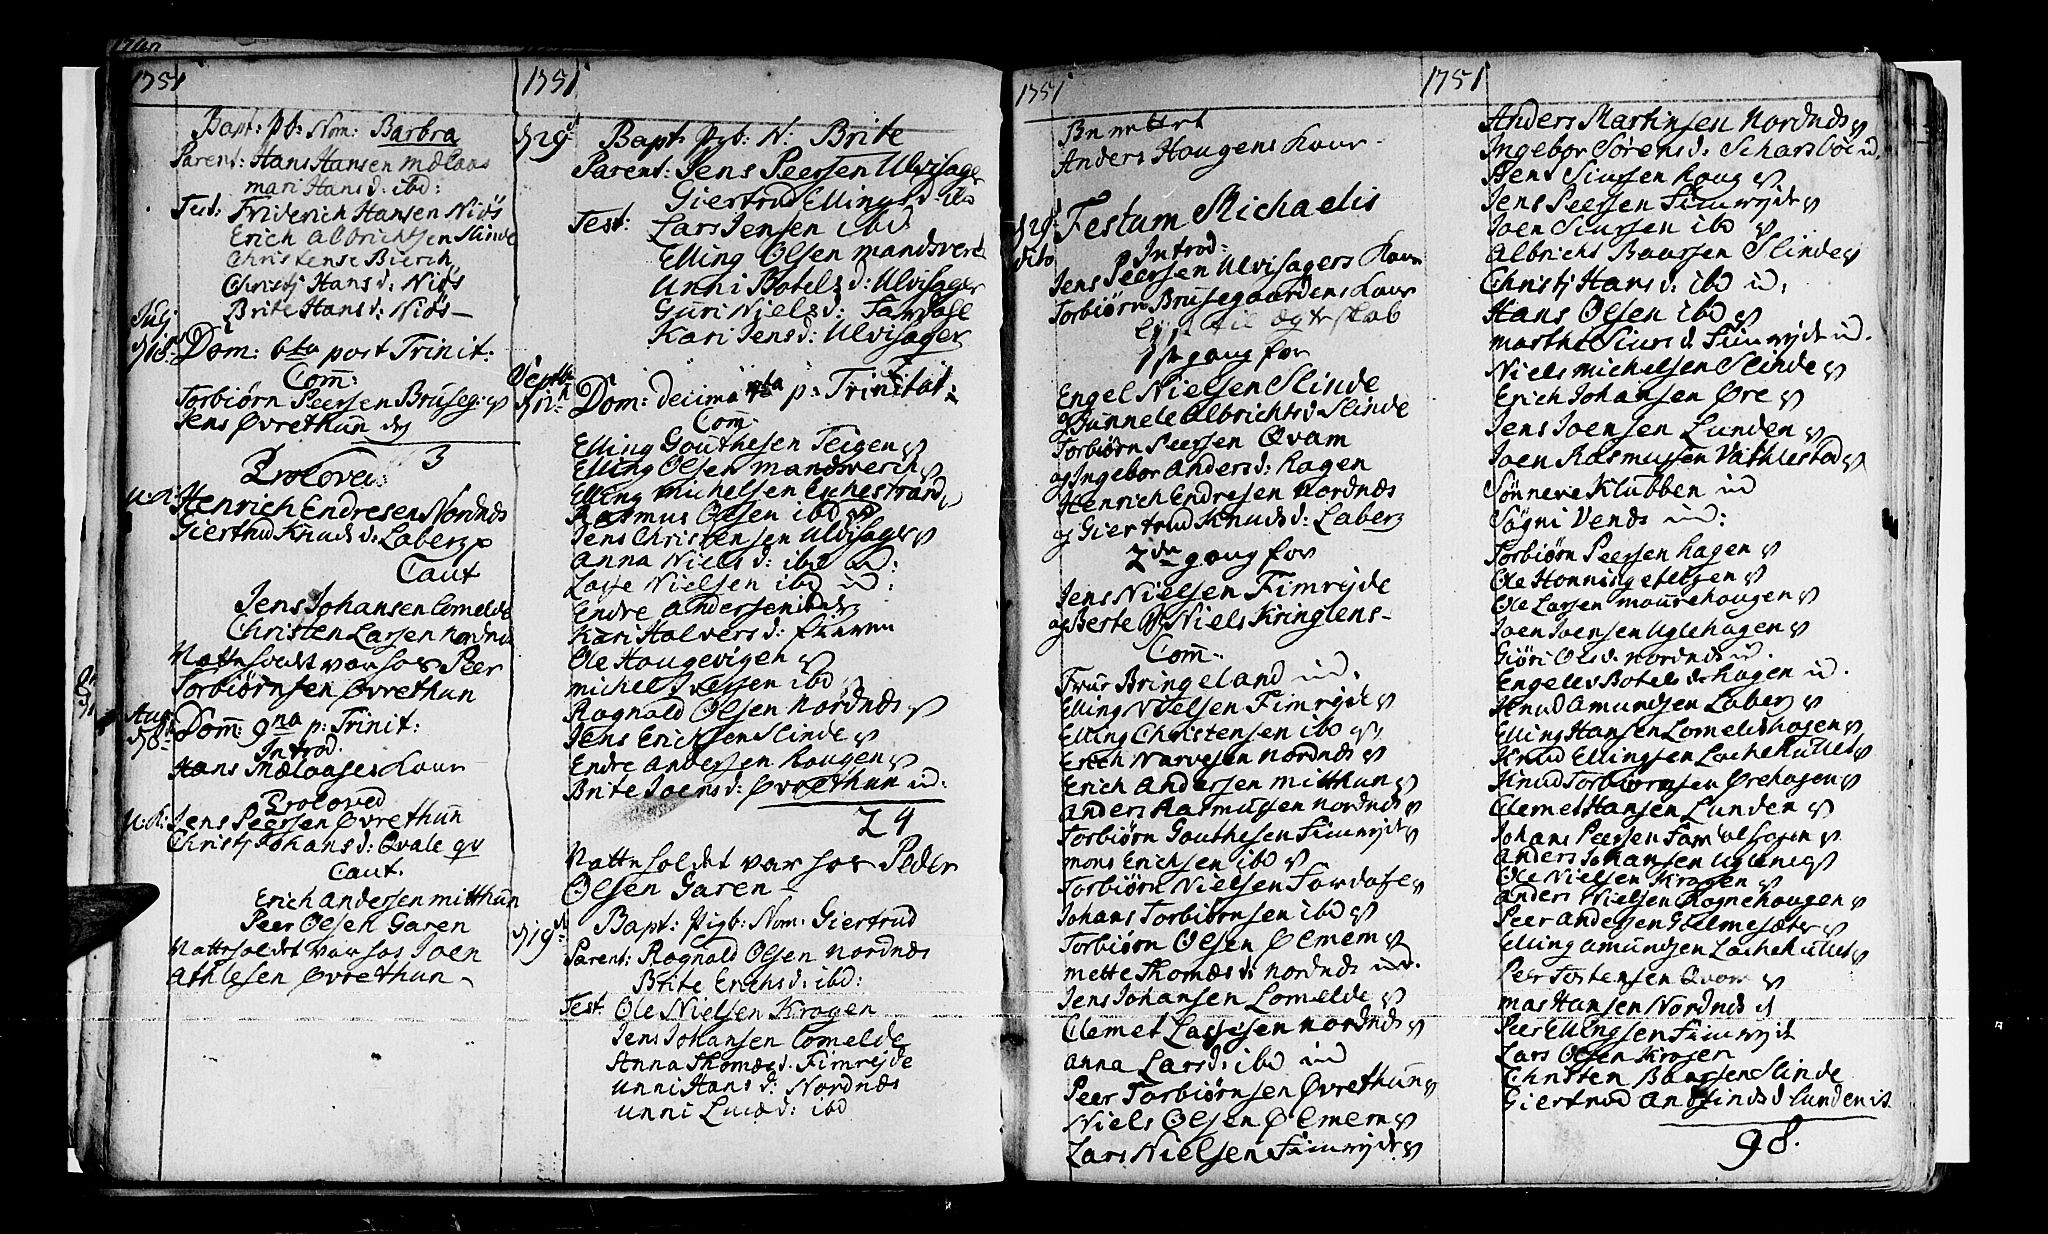 1751
Bapt: pb: Nom: Barbra
Parent: Hans Hansen Mælaas
mari Hans d: ibd:
Test: Friderich Hansen Niøs
Erich Albrichtsen Slinde
Christense Bierch
Christj Hans d: Niøs
Brite Hans d: Niøs
Julj
d 18 Dom: 6ta post Trinit:
Com:
Torbiørn Peersen Bruseg:
Jens Øvrethun
3
Troloved
u. d: Henrich Endresen Nordnes
Giertrud Knuds d: Laberg
Caut
Jens Johansen Lomelde
Christen Larsen Nordnes
Natteholdet var hos Peer
Torbiørnsen Øvrethun
Aug:
d 8 Dom: 9na p: Trinit:
Introd.
Hans Mælaases Kone
Troloved
u. d: Jens Peersen Øvrethun
Christj Johans d: Qvale
Caut.
Erich Andersen mitthun
Peer Olsen Garen
Natteholdet var hos Joen
Athlesen Øvrethun
1751
d 29 Bapt: Pigb: N: Brite
Parent: Jens Peersen Ulvisager
Giertrud Ellings d: ibd
Test: Lars Jensen ibd
Elling Olsen mandsverch
Unni Botels d: Ulvisager
Guri Niels d: Fardahl
Kari Jens d: Ulvisager
Septbr
d 12 Dom: decima p: Trinitat:
Com
Elling Gouthesen Teigen
Elling Olsen mandsverch
Elling Michelsen Eichestrand
Rasmus Olsen ibd
Jens Christensen Ulvisager
Anna Niels d: ibd ud:
Lasse Nielsen ibd ud:
Endre Andersen
Kari Halvers d:
Ole Haugevigen
Michel ibd
Ragnald Olsen Nordnes
Jens Erichsen Slinde
Endre Andersen haugen
Brite Joens d: Øvrethun ud:
24
Natteholdet var hos Peder
Olsen Garen
d 19 Bapt: Pigb: Nom: Giertrud
Parent: Ragnald Olsen Nordnes
Brite Erichs d: ibd:
Test: Ole Nielsen Kragen
Jens Johansen Lomelde
Anna Thomæ d. Fimrejde
Unni Hans d: Nordnæs
Unni Lucæ d: ibd
1751
Anders Haugens Kone
d 29 Festum Michaelis
dito Introd:
Jens Peersen Ulvisagers Kone
Torbiørn Brusegaardens Kone
Lyst til Ægteskab
1ste gang for
Engel Nielsen Slinde
og Gunnele Albrichts d Slinde
Torbiørn Peersen Qvam
og Ingebor Anders d: Hagen
Henrich Endresen Nordnæs
og Giertrud Knuds d: Laberg
2den gang for
Jens Nielsen Fimrejde
og Berte Niels Kringlens
Com:
Frue Bringeland ud:
Elling Nielsen Fimrejde
Elling Christensen ibd
Erich Narvesen Nordnes
Erich Andersen mitthun
Anders Rasmusen Nordnes
Torbiørn Gouthesen Fimrejde
mons Erichsen ibd
Torbiørn Nielsen Fardahl
Johans Torbiørnsen ibd
Torbiørn Olsen Ølmem
mette Thomæs d: Nordnes ud.
Jens Johansen Lomelde
Clemet Lassesen Nordnes
Anna Lars d: ibd ud
Peer Torbiørnsen Øvrethun
Niels Olsen Ølmem
Lars Nielsen Fimrejde
1751
Anders Martinsen Nordnes
Ingebor Sørens d: Scharsbøe ud.
Jens Siursen haug
Jens Peersen Fimrejde
Joen Siursen ibd
Albricht Baarsen Slinde
Christj Hans d: ibd ud:
Hans Olsen ibd
marthe Siurs d Fimrejde ud.
Niels Michelsen Slinde
Erich Johansen Øre
Jens Joensen Lunden
Joen Rasmussen Vathlestad
Sønneve Klubben ud
Søgni Vends ud:
Torbiørn Peersen hagen
Ole Honningetelgen
Ole Larsen maurehaugen
Joen Joensen Uglehagen
Giøri Ols d: Nordnes ud.
Engelev Botels d: hagen ud.
Knud Amundsen Laberg
Elling Hansen Lomeldshagen
Knud Ellingsen Lachehullet
Knud Torbiørnsen Ørehagen
Clemet Hansen Lunden
Johans Peersen
Anders Johansen
Ole Nielsen Kragen
Anders Nielsen Rognehaugen
Peer Andersen
Elling Amundsen Lachehullet
Peer Tostensen Qvam
mas Hansen Nordnes
Peer Ellingsen Fimrejde
Lars Olsen Kragen
Christen Baarsen Slinde
Giertrud Andfinds d Lunden
98.